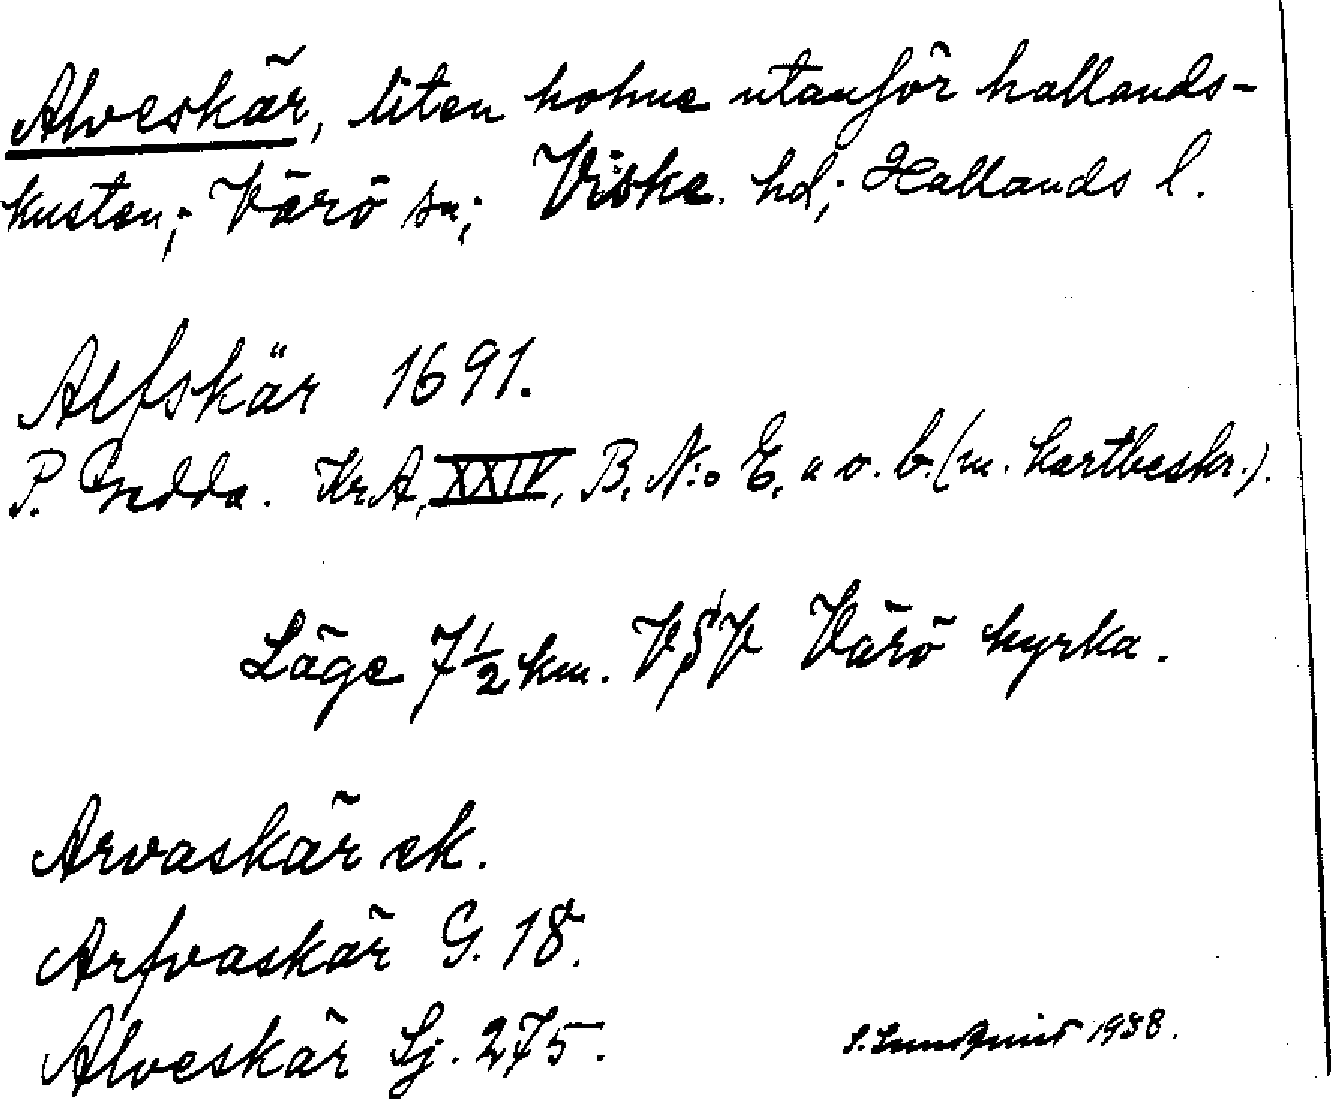 Alveskär, liten holme utanför hallands-
kusten; Värö sn; Viske hd; Hallands l.
Alfskär 1691.
P. Gedda. KrA, XXIV, B. N:o E, a o. b. (m. kartbeskr.).
Läge 7 1/2 km. VSV Värö kyrka.
Arvaskär ek.
Arfvaskär G. 18.
Alveskär Sj. 275.
S. Lundquist 1938.